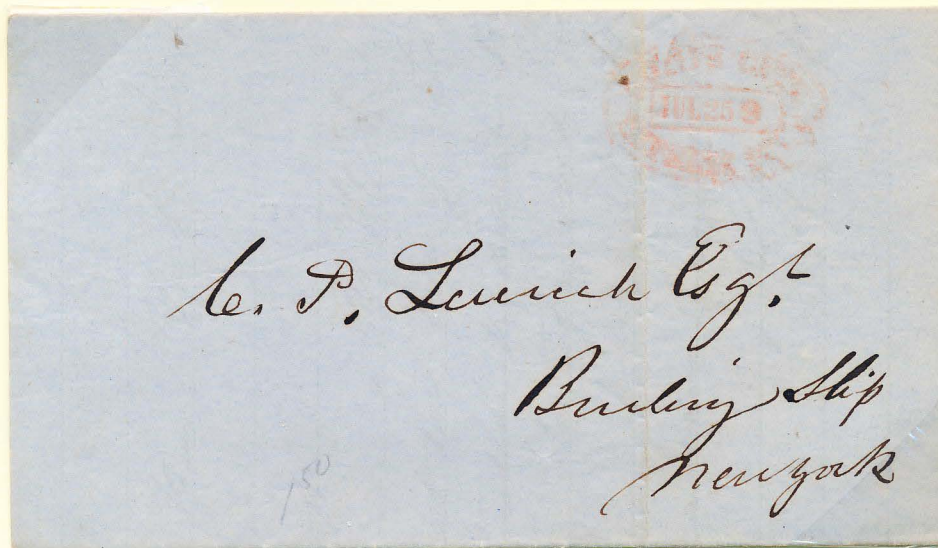 JUL 25
C. P. Leverich Esqr.
Burling Slip
New York
150